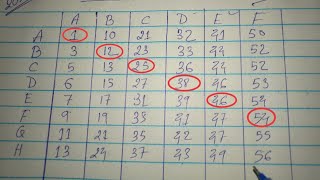 A B C D E F
A 1 10 21 32 41 50
B 3 12 23 33 44 52
C 5 13 25 36 44 52
D 6 15 27 38 46 53
E 7 17 31 39 46 54
F 9 19 33 41 47 54
G 11 21 35 42 47 55
H 13 24 37 43 49 56